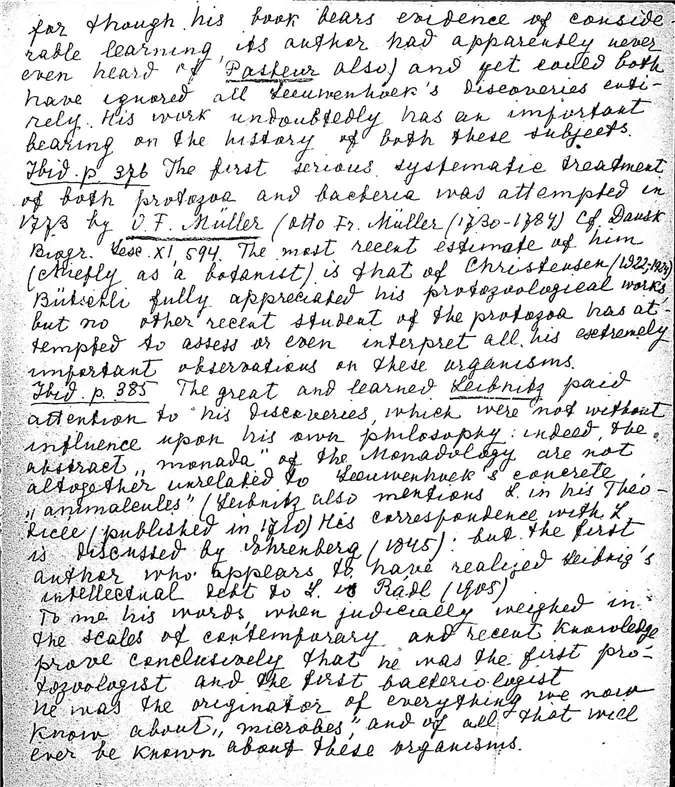 for though his book bears evidence of conside-
rable learning, its author had apparently never
even heard of Pasteur also) and yet could both
have ignored all Leeuwenhoek's discoveries enti-
rely. His work undoubtedly has an important
bearing on the history of both these subjects.
Ibid. p 376 The first serious systematic treatment
of both protozoa and bacteria was attempted in
1773 by O F. Müller (Otto Fr. Müller (1730-1784) Cf Dansk
Biogr. Lex. XI, 594. The most recent estimate of him
(chiefly as a botanist) is that of Christensen (1922-1924)
Bütschli fully appreciated his protozoological works,
but no other recent student of the protozoa has at-
tempted to assess or even interpret all his extremely
important observations on these organisms.
Ibid. p. 385 The great and learned Leibnitz paid
attention to his discoveries, which were not without
influence upon his own philosophy: indeed, the
abstract „monada" of the Monadology are not
altogether unrelated to Leeuwenhoek's concrete
„animalcules" (Leibnitz also mentions L. in his Theo-
dicee (published in 1710) His correspondence with L
is discussed by Ehrenberg (1845): but the first
author who appears to have realized Leibnig's
intellectual debt to L. is Rádl (1905)
To me his words, when judicially weighed in
the scales of contemporary and recent knowledge
prove conclusively that he was the first pro-
tozoologist and the first bacteriologist
he was the originator of everything we now
know about „microbes", and of all that will
ever be known about these organisms.